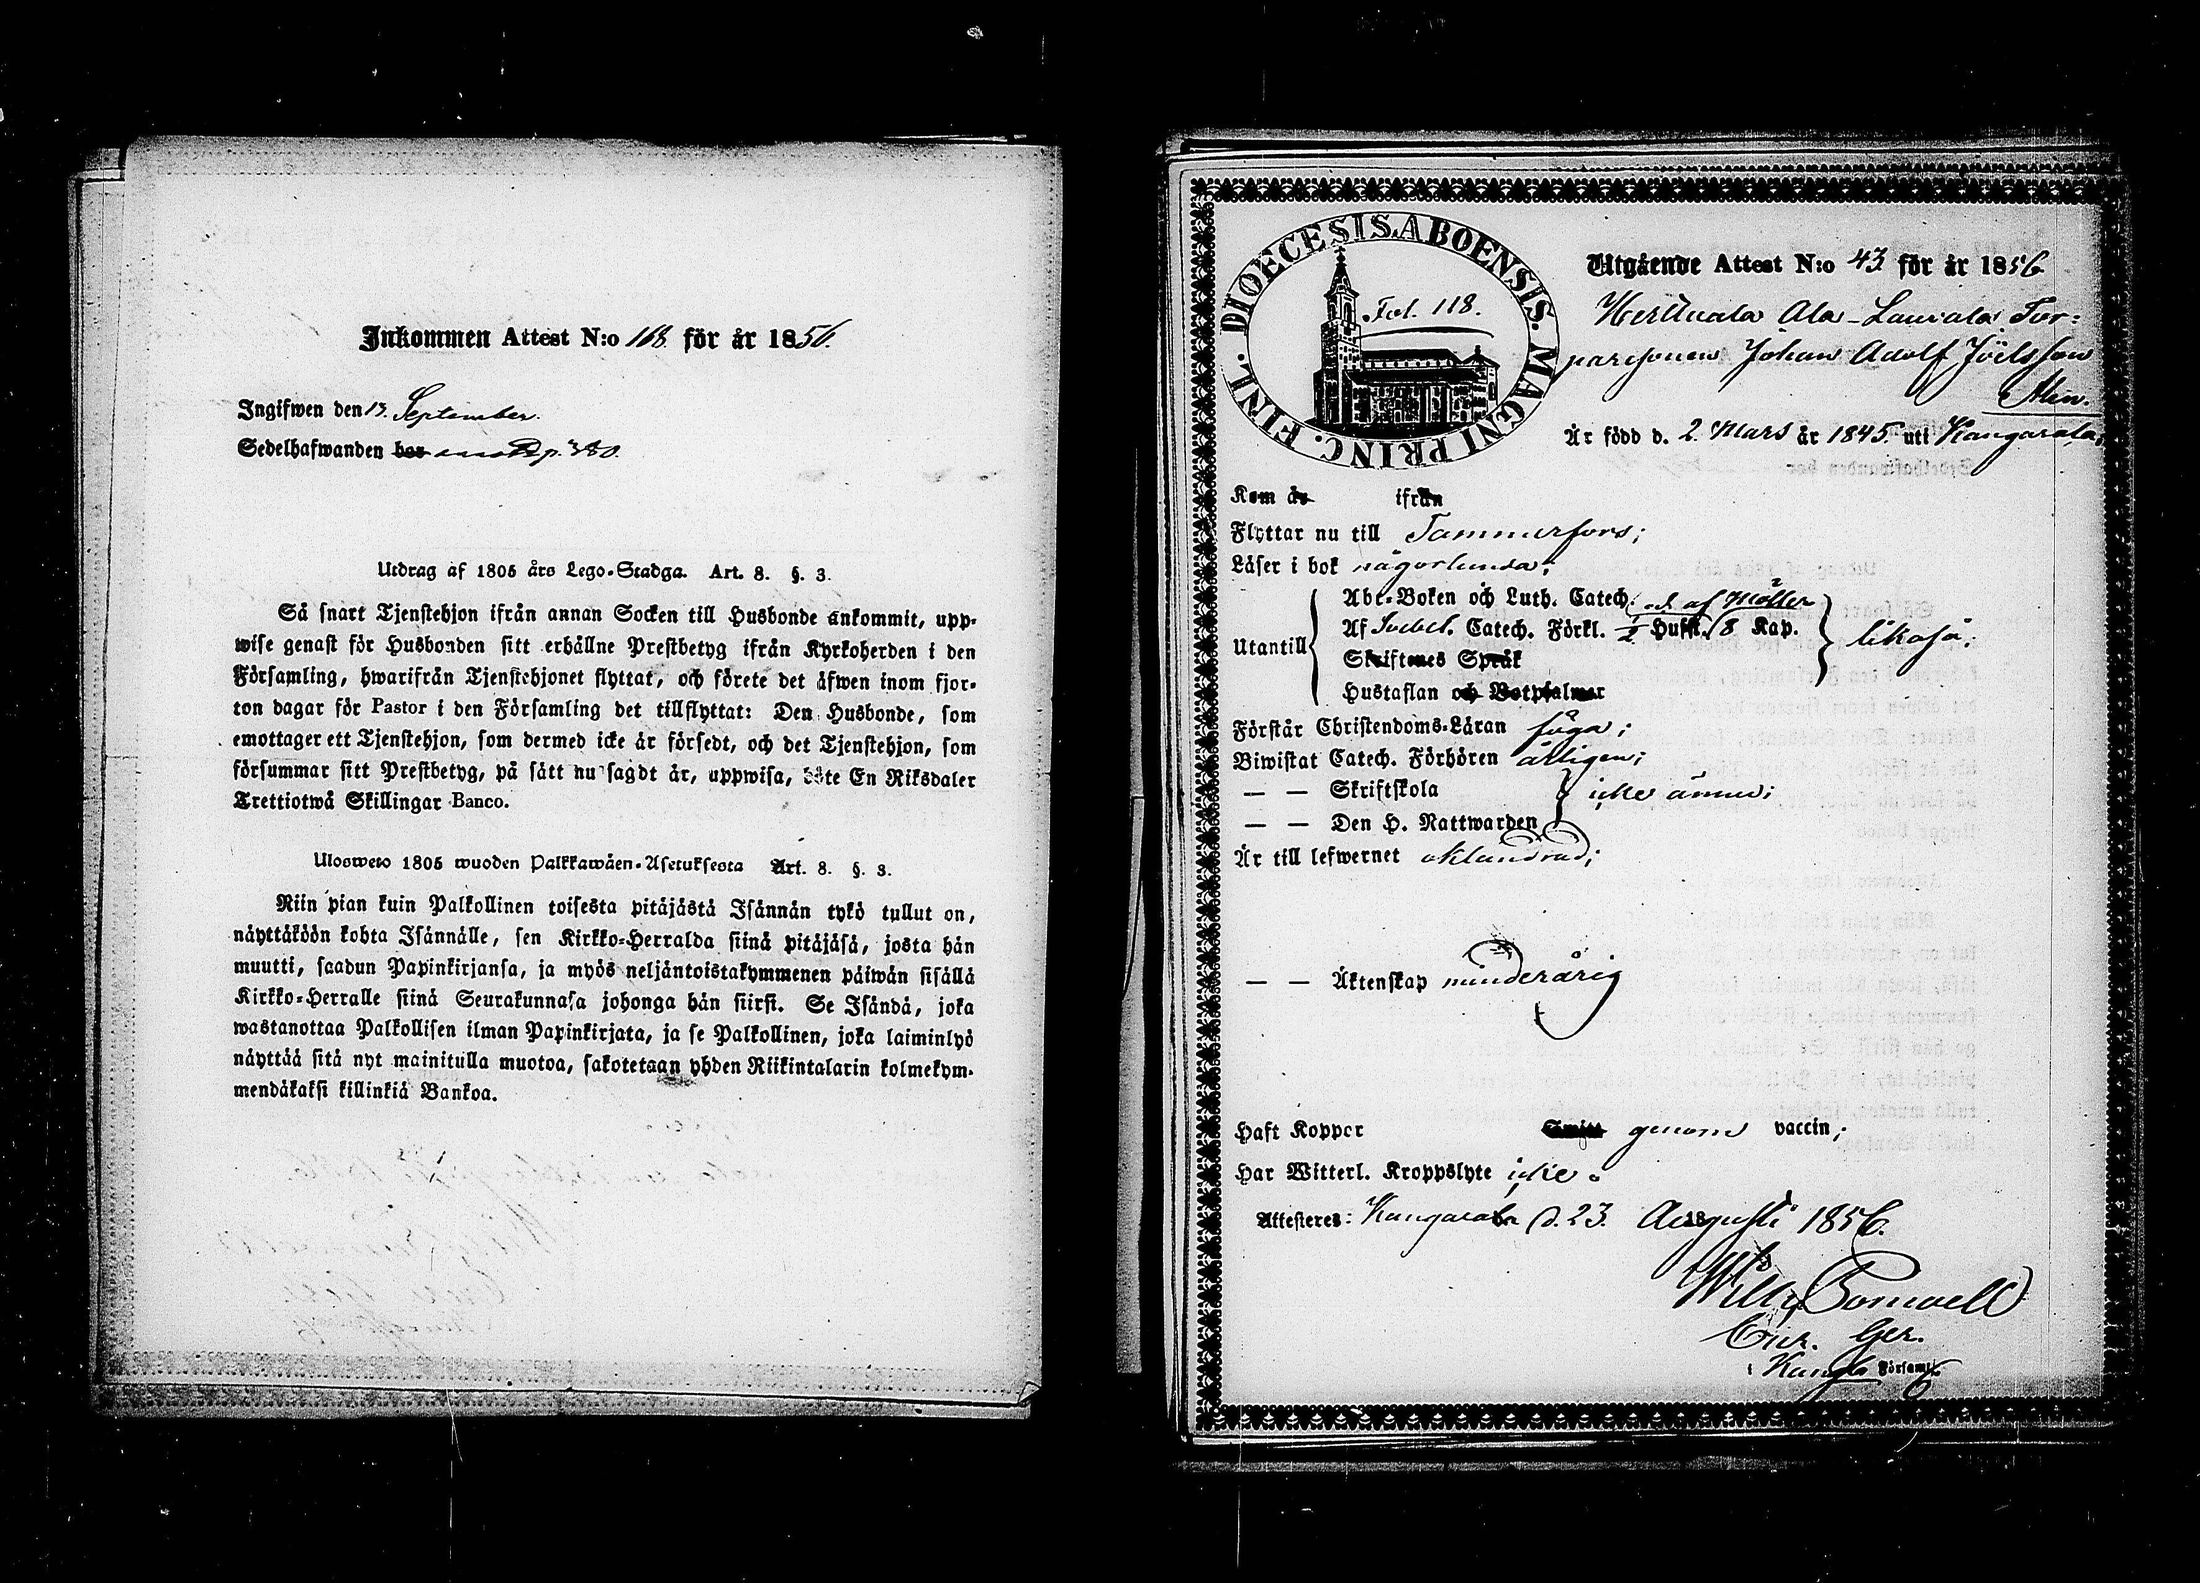 Inkommen Attest N:o 168 för år 1856.
Ingifwen den 13 September.
Sedelhafwanden bor p. 380.
Utdrag af 1805 års Lego-Stadga. Art. 8. §. 3.
Så snart Tjenstehjon ifrån annan Socken till Husbonde ankommit, upp-
wise genast för Husbonden sitt erhållne Prestbetyg ifrån Kyrkoherden i den
Församling, hwarifrån Tjenstehjonet flyttat, och förete det äfwen inom fjor-
ton dagar för Pastor i den Församling det tillflyttat: Den Husbonde, som
emottager ett Tjenstehjon, som dermed icke är försedt, och det Tjenstehjon, som
försummar sitt Prestbetyg, på sätt nu sagdt är, uppwisa, böte En Riksdaler
Trettiotwå Skillingar Banco.
Ulosweto 1805 wuoden Palkkawäen-Asetuksesta Art. 8. §. 3.
Niin pian kuin Palkollinen toisesta pitäjästä Isännän tykö tullut on,
näyttäköön kohta Isännälle, sen Kirkko-Herralda siinä pitäjäsä, josta hän
muutti, saadun Papinkirjansa, ja myös neljäntoistakymmenen päiwän sisällä
Kirkko-Herralle siinä Seurakunnasa johonga hän siirsi. Se Isändä, joka
wastanottaa Palkollisen ilman Papinkirjata, ja se Palkollinen, joka laiminlyö
näyttää sitä nyt mainitulla muotoa, sakotetaan yhden Riikintalarin kolmekym-
mendäkaksi killinkiä Bankoa.
DIOECESIS. ABOENSIS. MAGNI PRINC. FINL.
Fol. 118.
Utgående Attest N:o 43 för år 1856
Herttuala Ala-Laurala Tor-
paresonen Johan Adolf Joelsson
Alén.
Är född d. 2 Mars år 1845. uti Kangasala;
Kom år ifrån
Flyttar nu till Tammerfors;
Läser i bok någorlunda;
Utantill
Abc-Boken och Luth. Catech. och af Möller
Af Svebel. Catech. Förkl. 1 Hufst. 8 Kap.
Skriftenes Språk
Hustaflan och Botpsalmer
likaså;
Förstår Christendoms-Läran föga;
Biwistat Catech. Förhören årligen;
— — Skriftskola
— — Den H. Nattwarden
icke ännu;
Är till lefwernet oklandrad;
— — Äktenskap minderårig
Haft Koppor Smitt genom vaccin;
Har Witterl. Kroppslyte icke.
Attesteras: Kangasala d. 23. Augusti 1856.
Wilh. Bomwell
Ger.
i Kangla Församl.